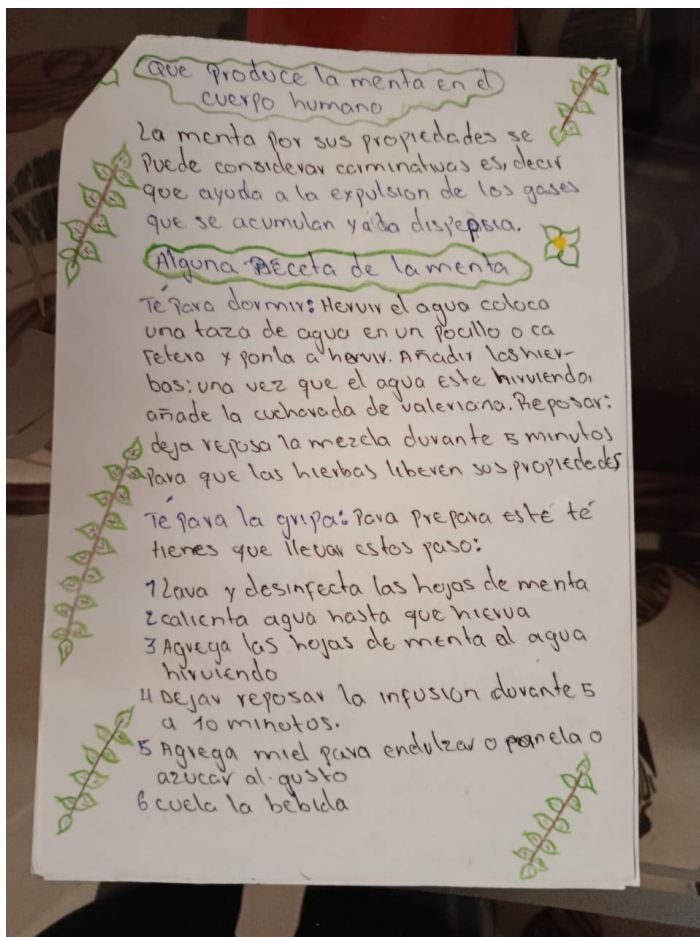 Que produce la menta en el
cuerpo humano
La menta por sus propiedades se
puede considerar carminativas es, decir
que ayuda a la expulsion de los gases
que se acumulan y a la dispepsia.
Alguna Receta de la menta
Té para dormir: Hervir el agua coloca
una taza de agua en un pocillo o ca
fetera y ponla a hervir. Añadir las hier-
bas: una vez que el agua este hirviendo,
añade la cucharada de valeriana. Reposar:
deja reposa la mezcla durante 5 minutos
para que las hierbas liberen sus propiedades
Té para la gripa: Para prepara esté té
tienes que llevar estos paso:
1 Lava y desinfecta las hojas de menta
2 calienta agua hasta que hierva
3 Agrega las hojas de menta al agua
hirviendo
4 Dejar reposar la infusion durante 5
a 10 minutos.
5 Agrega miel para endulzar o panela o
azucar al gusto
6 cuela la bebida